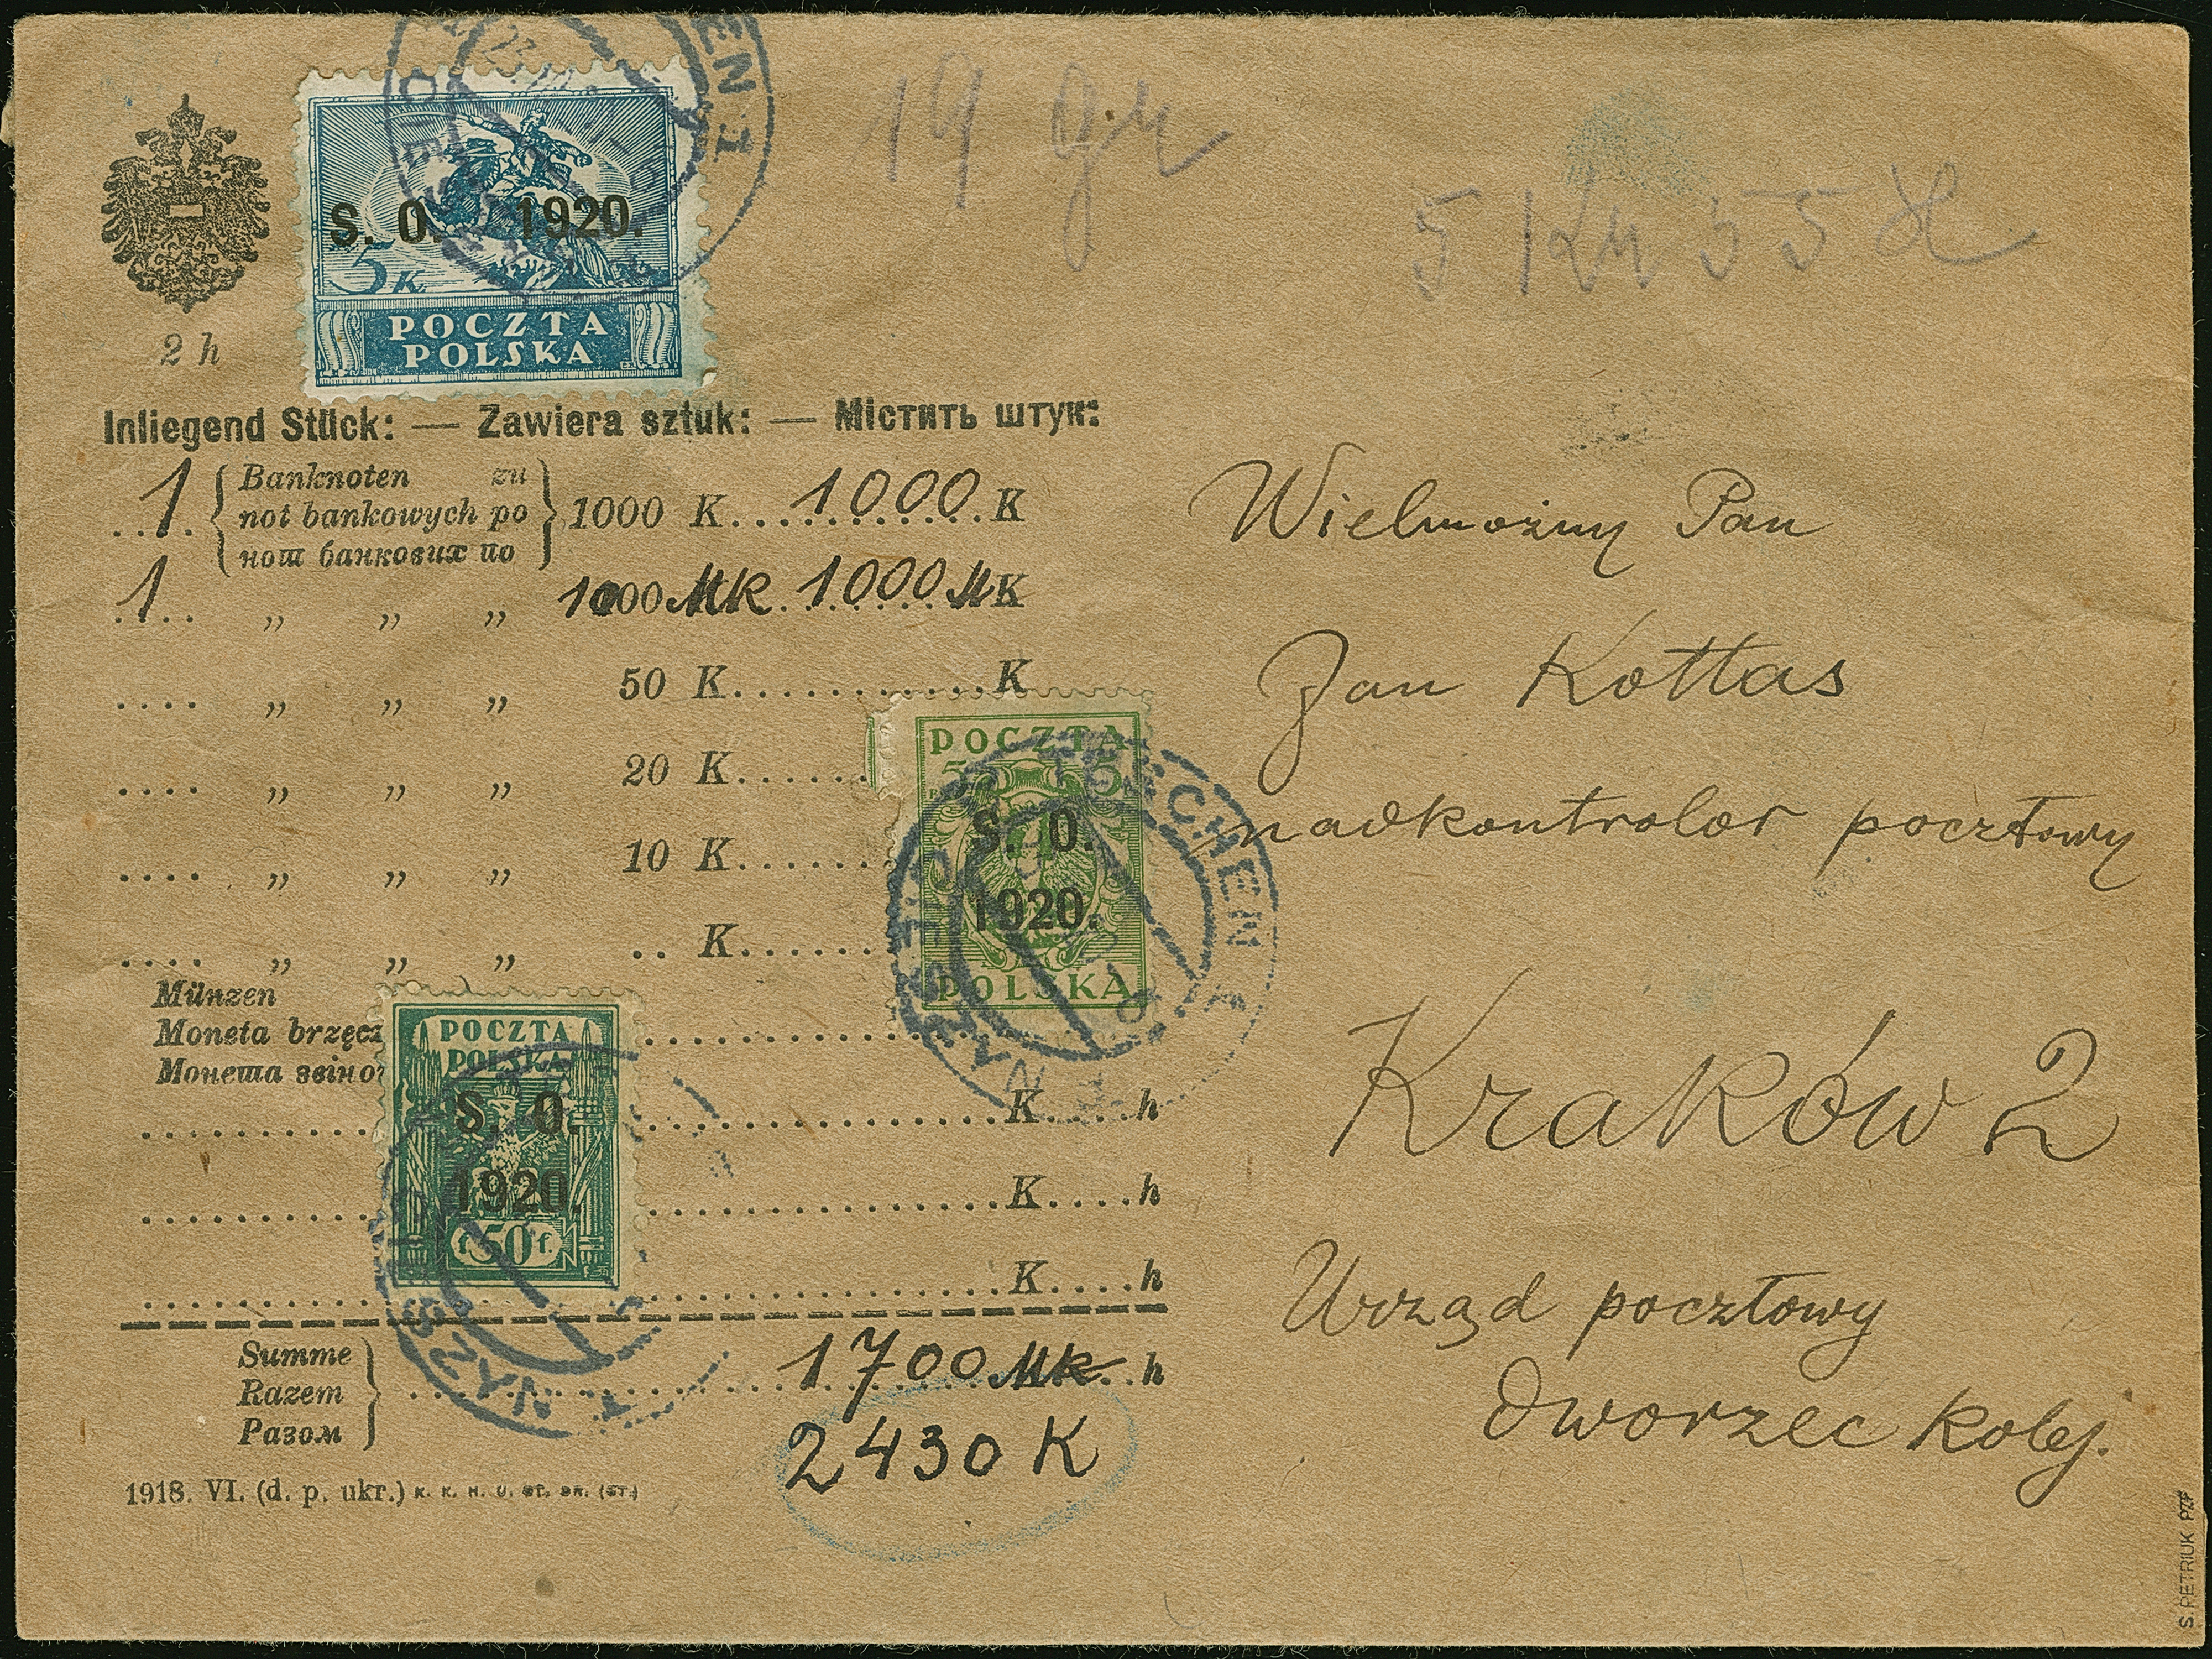 19 gr
5 Kr 55 h
2 h
S. O. 1920.
5 K
POCZTA
POLSKA
Inliegend Stück: — Zawiera sztuk: — Містить штук:
1 { Banknoten zu
not bankowych po
нот банкових по } 1000 K 1000 K
1 „ „ „ 1000 Mk 1000 MK
.... „ „ „ 50 K...........K
.... „ „ „ 20 K......
.... „ „ „ 10 K......
.... „ „ „ .. K......
POCZTA
5 5
S. O.
1920.
POLSKA
TESCHEN 1
CIESZYN 1
Münzen
Moneta brzęcz
Монета звіно
K....h
K....h
K....h
POCZTA
POLSKA
S. O.
1920.
f 50 f.
Summe
Razem
Разом
1700 Mk h
2430 K
1918. VI. (d. p. ukr.) K. K. H. U. ST. DR. (ST.)
Wielmożny Pan
Jan Kottas
nadkontrolor pocztowy
Kraków 2
Urząd pocztowy
dworzec kolej.
S. PETRIUK PZF